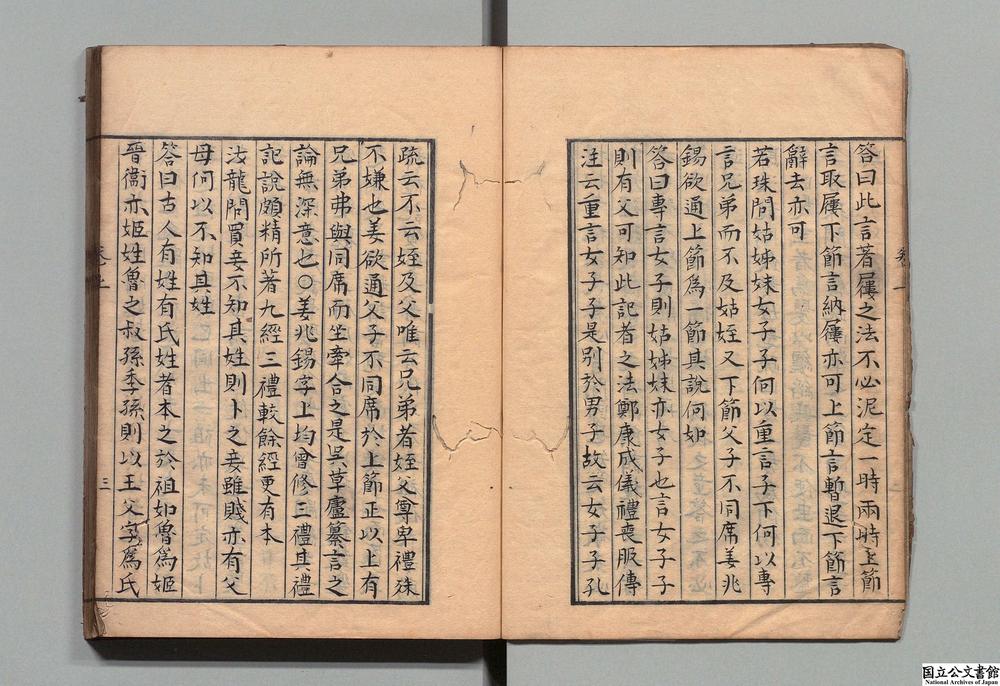 答曰此言著屨之法不必泥定一時兩時上節
言取屨下節言納屨亦可上節言暫退下節言
辭去亦可
若珠問姑姊妹女子子何以重言子下何以專
言兄弟而不及姑姪又下節父子不同席姜兆
錫欲通上節為一節其說何如
答曰專言女子則姑姊妹亦女子也言女子子
則有父可知此記者之法鄭康成儀禮喪服傳
注云重言女子子是別於男子故云女子子孔
疏云不云姪及父唯云兄弟者姪父尊卑禮殊
不嫌也姜欲通父子不同席於上節正以上有
兄弟弗與同席而坐牽合之是吳草廬纂言之
論無深意也○姜兆錫字上均曾修三禮其禮
記說頗精所著九經三禮較餘經更有本
汝龍問買妾不知其姓則卜之妾雖賤亦有父
母何以不知其姓
答曰古人有姓有氏姓者本之於祖如魯為姬
晉衞亦姬姓魯之叔孫季孫則以王父字為氏
三
国立公文書館
National Archives of Japan